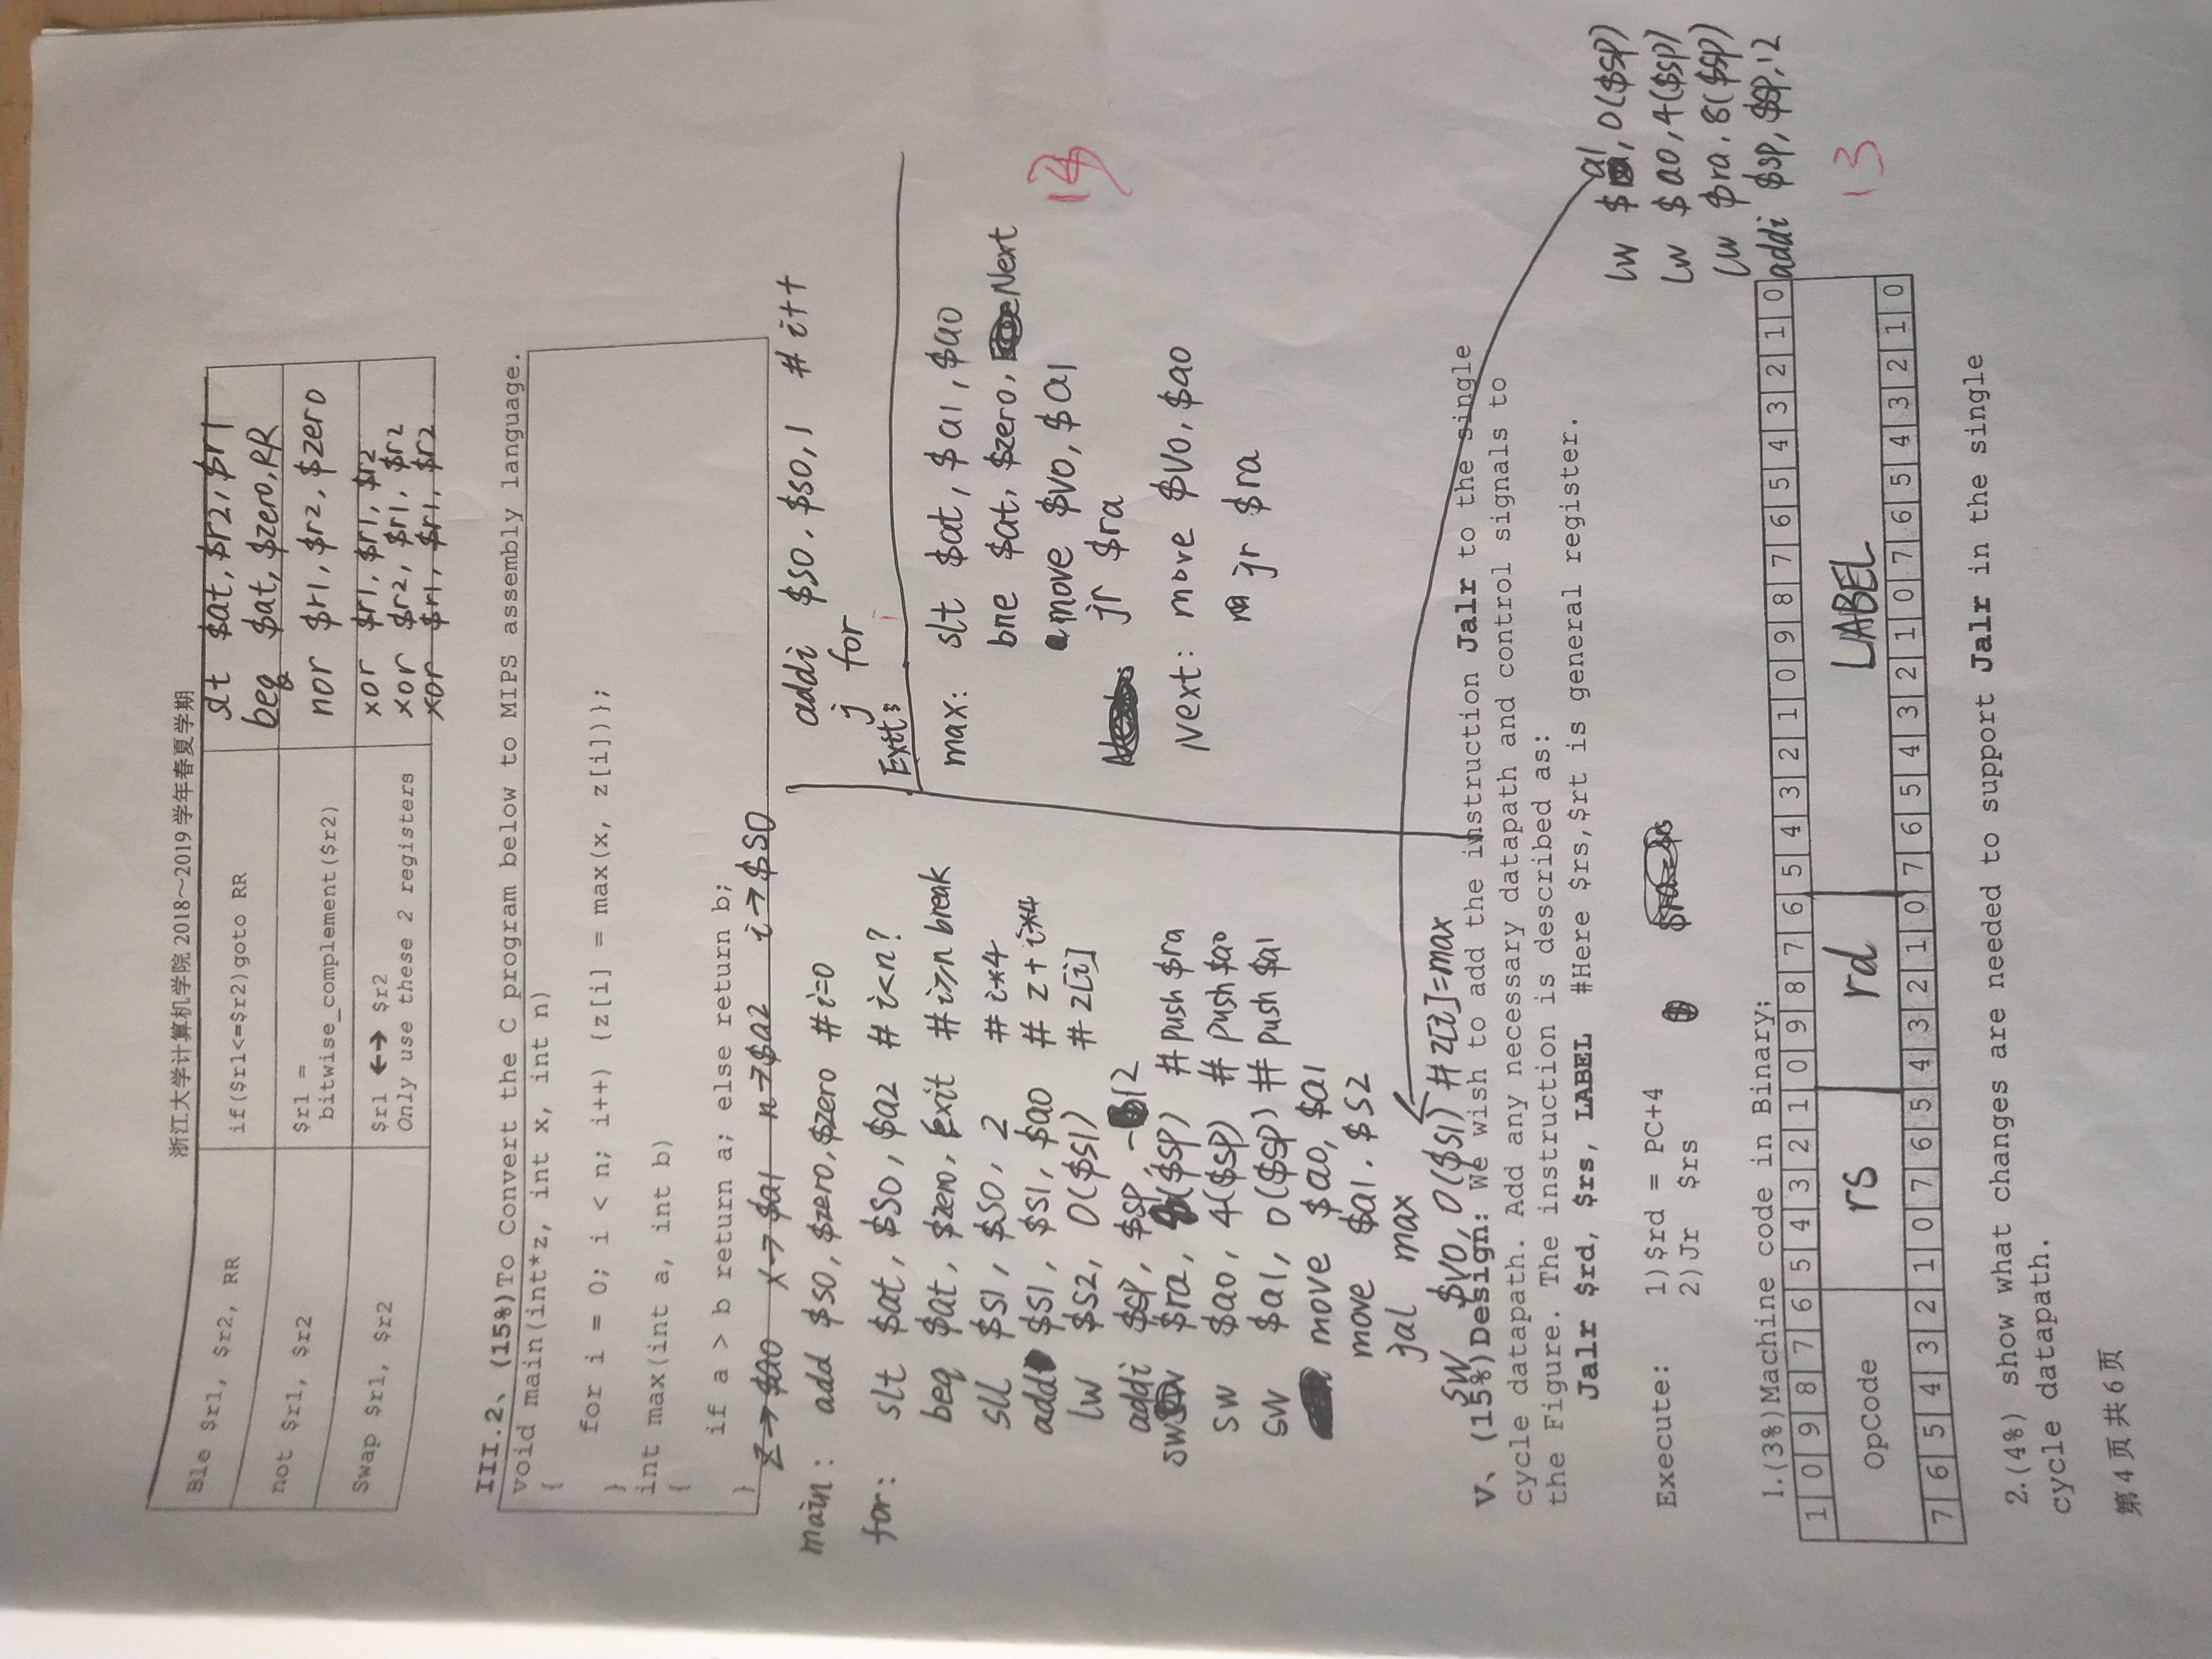 浙江大学计算机学院 2018～2019 学年春夏学期
Ble $r1, $r2, RR
if($r1<=$r2)goto RR
slt $at, $r2, $r1
beq $at, $zero, RR
not $r1, $r2
$r1 =
bitwise_complement($r2)
nor $r1, $r2, $zero
Swap $r1, $r2
$r1 ←→ $r2
Only use these 2 registers
xor $r1, $r1, $r2
xor $r2, $r1, $r2
xor $r1, $r1, $r2
III.2、(15%)To Convert the C program below to MIPS assembly language.
void main(int*z, int x, int n)
{
for i = 0; i < n; i++) {z[i] = max(x, z[i])};
}
int max(int a, int b)
{
if a > b return a; else return b;
}
z→$a0 x→$a1 n→$a2 i→$s0
main: add $s0, $zero, $zero #i=0
for: slt $at, $s0, $a2 # i<n?
beq $at, $zero, Exit #i≥n break
sll $s1, $s0, 2 # i*4
add $s1, $s1, $a0 # z+i*4
lw $s2, 0($s1) # z[i]
addi $sp, $sp, -12
sw $ra, 8($sp) # push $ra
sw $a0, 4($sp) # push $a0
sw $a1, 0($sp) # push $a1
move $a0, $a1
move $a1. $s2
jal max
sw $v0, 0($s1) # z[i]=max
addi $s0. $s0, 1 # i++
j for
Exit:
max: slt $at, $a1, $a0
bne $at, $zero, Next
move $v0, $a1
jr $ra
Next: move $v0, $a0
jr $ra
V、(15%)Design: We wish to add the instruction Jalr to the single
cycle datapath. Add any necessary datapath and control signals to
the Figure. The instruction is described as:
Jalr $rd, $rs, LABEL #Here $rs,$rt is general register.
Execute: 1)$rd = PC+4
2)Jr $rs
lw $a1, 0($sp)
lw $a0, 4($sp)
lw $ra. 8($sp)
addi $sp, $sp, 12
1.(3%)Machine code in Binary:
1 0 9 8 7 6 5 4 3 2 1 0 9 8 7 6 5 4 3 2 1 0 9 8 7 6 5 4 3 2 1 0
OpCode rs rd LABEL
13
7 6 5 4 3 2 1 0 7 6 5 4 3 2 1 0 7 6 5 4 3 2 1 0 7 6 5 4 3 2 1 0
2.(4%) show what changes are needed to support Jalr in the single
cycle datapath.
第 4 页 共 6 页